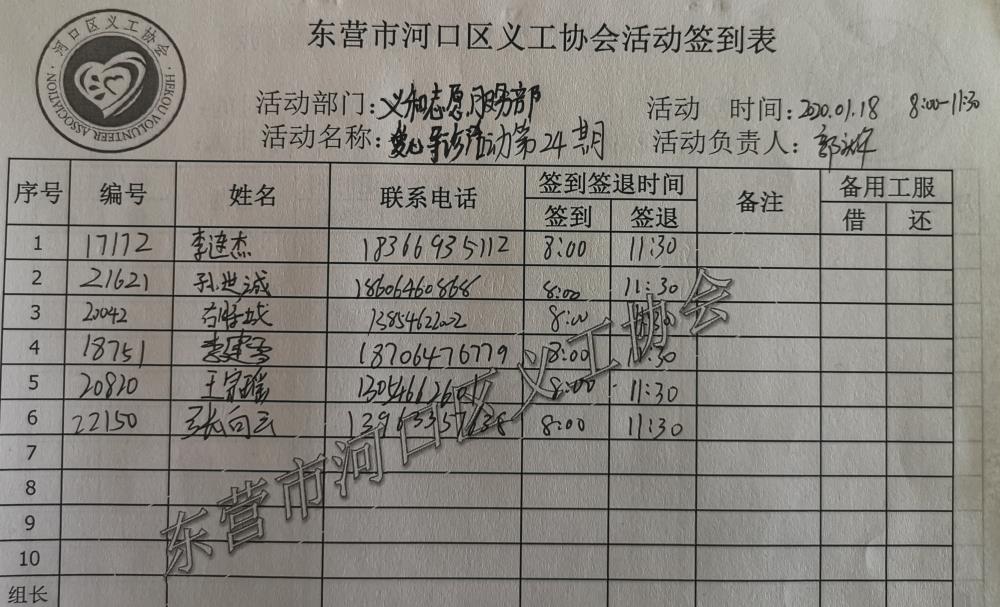 河口区义工协会
HEKOU VOLUNTEER ASSOCIATION
东营市河口区义工协会活动签到表
活动部门:义和志愿服务部
活动 时间:2020.01.18 8:00-11:30
活动名称: 导诊活动第24期
活动负责人:郭
序号 编号 姓名 联系电话 签到签退时间 备注 备用工服
签到 签退 借 还
1 17172 李连杰 18366935112 8:00 11:30
2 21621 孙世诚 18606460868 8:00 11:30
3 20042 13854622002 8:00
4 18751 18706476779 8:00 11:30
5 20820 王宗瑶 8:00 11:30
6 22150 张向云 8:00 11:30
7
8
9
10
组长
东营市河口区义工协会